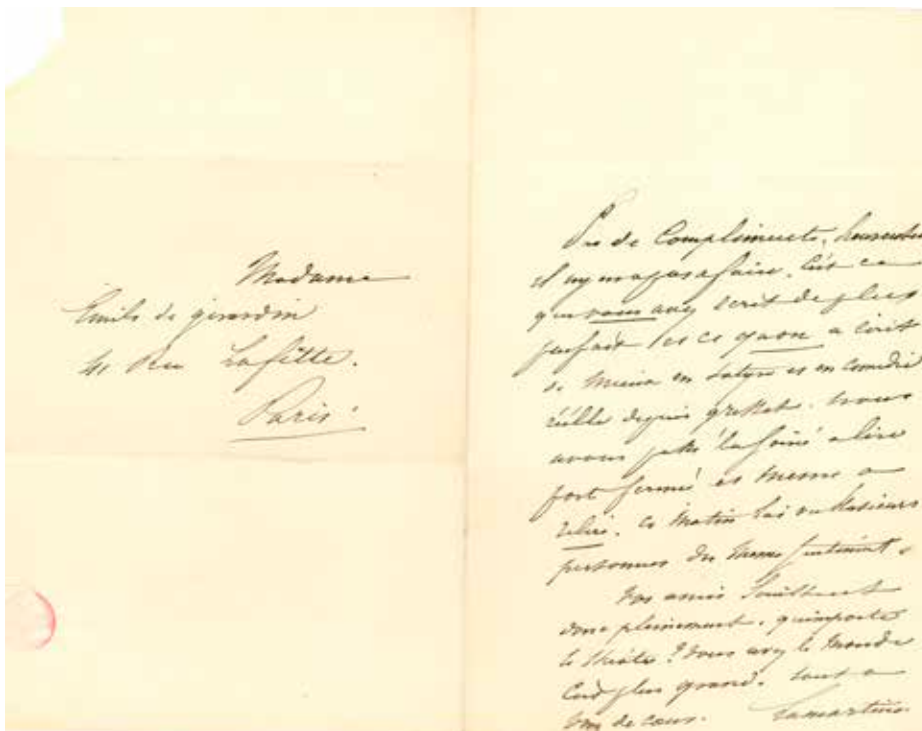 Madame
Emile de girardin
41 Rue Lafitte.
Paris.
Pas de Compliments,
il ny en a pas a faire. C'est ce
que vous avez écrit de plus
parfait et ce qu'on a écrit
de mieux en Satyre et en comédie
réélle depuis gresset. nous
avons passé la soiré a lire
port fermé et meme a
relire. ce matin j'ai vu plusieurs
personnes du meme sentiment.
Vos amis jouissent
donc pleinement. qu'importe
le théâtre? vous avez le monde
C'est plus grand. tout a
vous de cœur. Lamartine